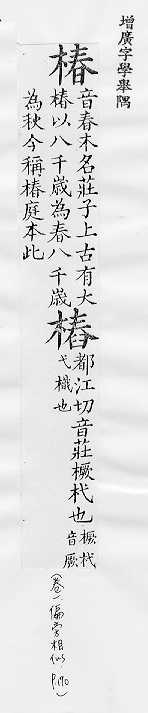 增廣字學舉隅
椿
音春木名莊子上古有大
椿以八千歲為春八千歲
為秋今稱椿庭本此
樁
都江切音莊橛杙也
弋橶也
橛音厥
杙
(卷一偏旁相似P.170)